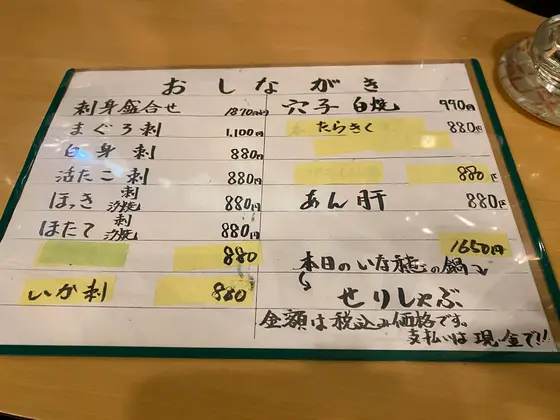 おしながき
刺身盛合せ 1870円
まぐろ刺 1,100円
白身刺 880円
活たこ刺 880円
ほっき 刺 汐焼 880円
ほたて 刺 汐焼 880円
880
いか刺 880
穴子白焼 990円
たらきく 880円
880円
あん肝 880円
1650円
本日のいな の鍋
せりしゃぶ
金額は税込み価格です。
支払いは現金で!!